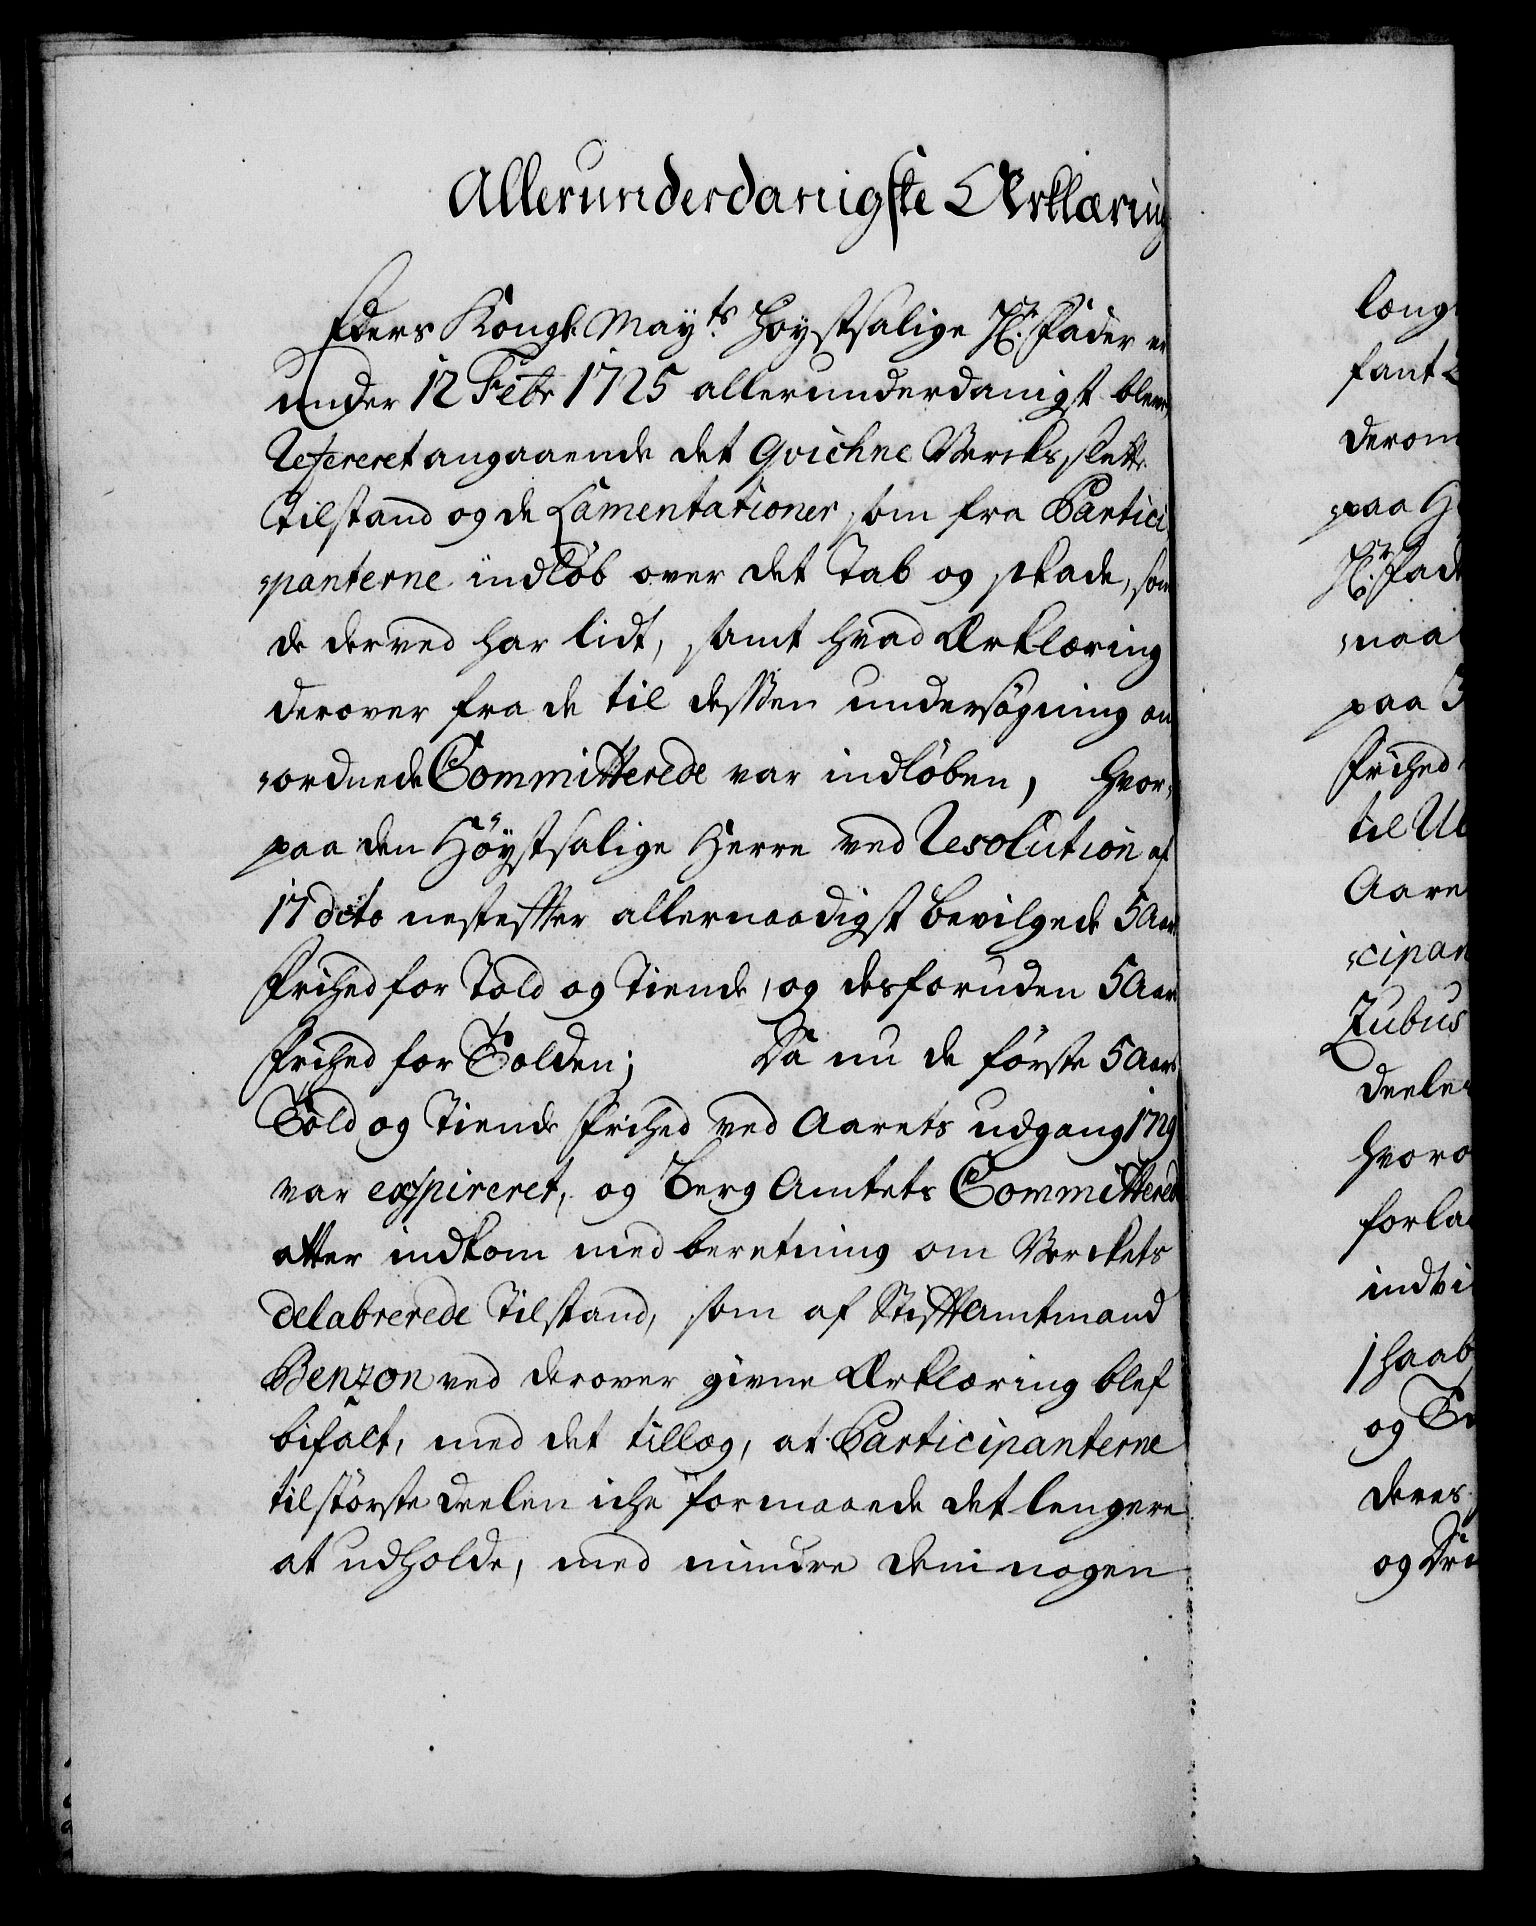 Allerunderdanigste Ærklæring
Eders Kongl. Mayts Høystsalige Hr. Fader er
under 12 Febr 1725 allerunderdanigst blevn
Refereret angaaende det Qvichne Vercks slette
tilstand og de Lamentationer som fra Partici
panterne indløb over det Tab og skade, som
de derved har lidt, samt hvad Ærklæring
derover fra de til dessen undersøgning an
ordnede Committerede var indløben, hvor,
paa den Høystsalige Herre ved Resolution af
17 dito nestefter allernaadigst bevilgede 5 Aars
Friehed for Told og Tiende, og desforuden 5 Aars
Friehed for Tolden; Da nu de første 5 Aars
Told og Tiende Friehed ved Aarets udgang 1729
var exspireret, og Berg Amtets Committerede
atter indkom med beretning om Verckets
delabrerede Tilstand, som af Stiftamtmand
Benzon ved derover givne Ærklæring blef
bifalt, med det tillæg, at Participanterne
til største deelen iche formaaede det lengere
at udholde, med mindre dem nogen
læng
fant
derom
paa
Hr. Fade
naa
paa
Friehed
til
Aare
cipan
Zubus
deele
hvoro
forla
indvi
i haab
og
deres
og